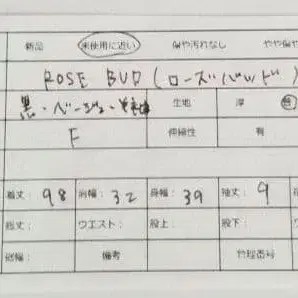 新品 未使用に近い 傷や汚れなし やや傷や
ROSE BUD (ローズバッド)
黒・ベージュ・ 生地 厚 普
F 伸縮性 有
着丈: 98 肩幅: 32 身幅: 39 袖丈: 9
総丈: ウエスト: 股上: 股下:
総幅: 備考 管理番号